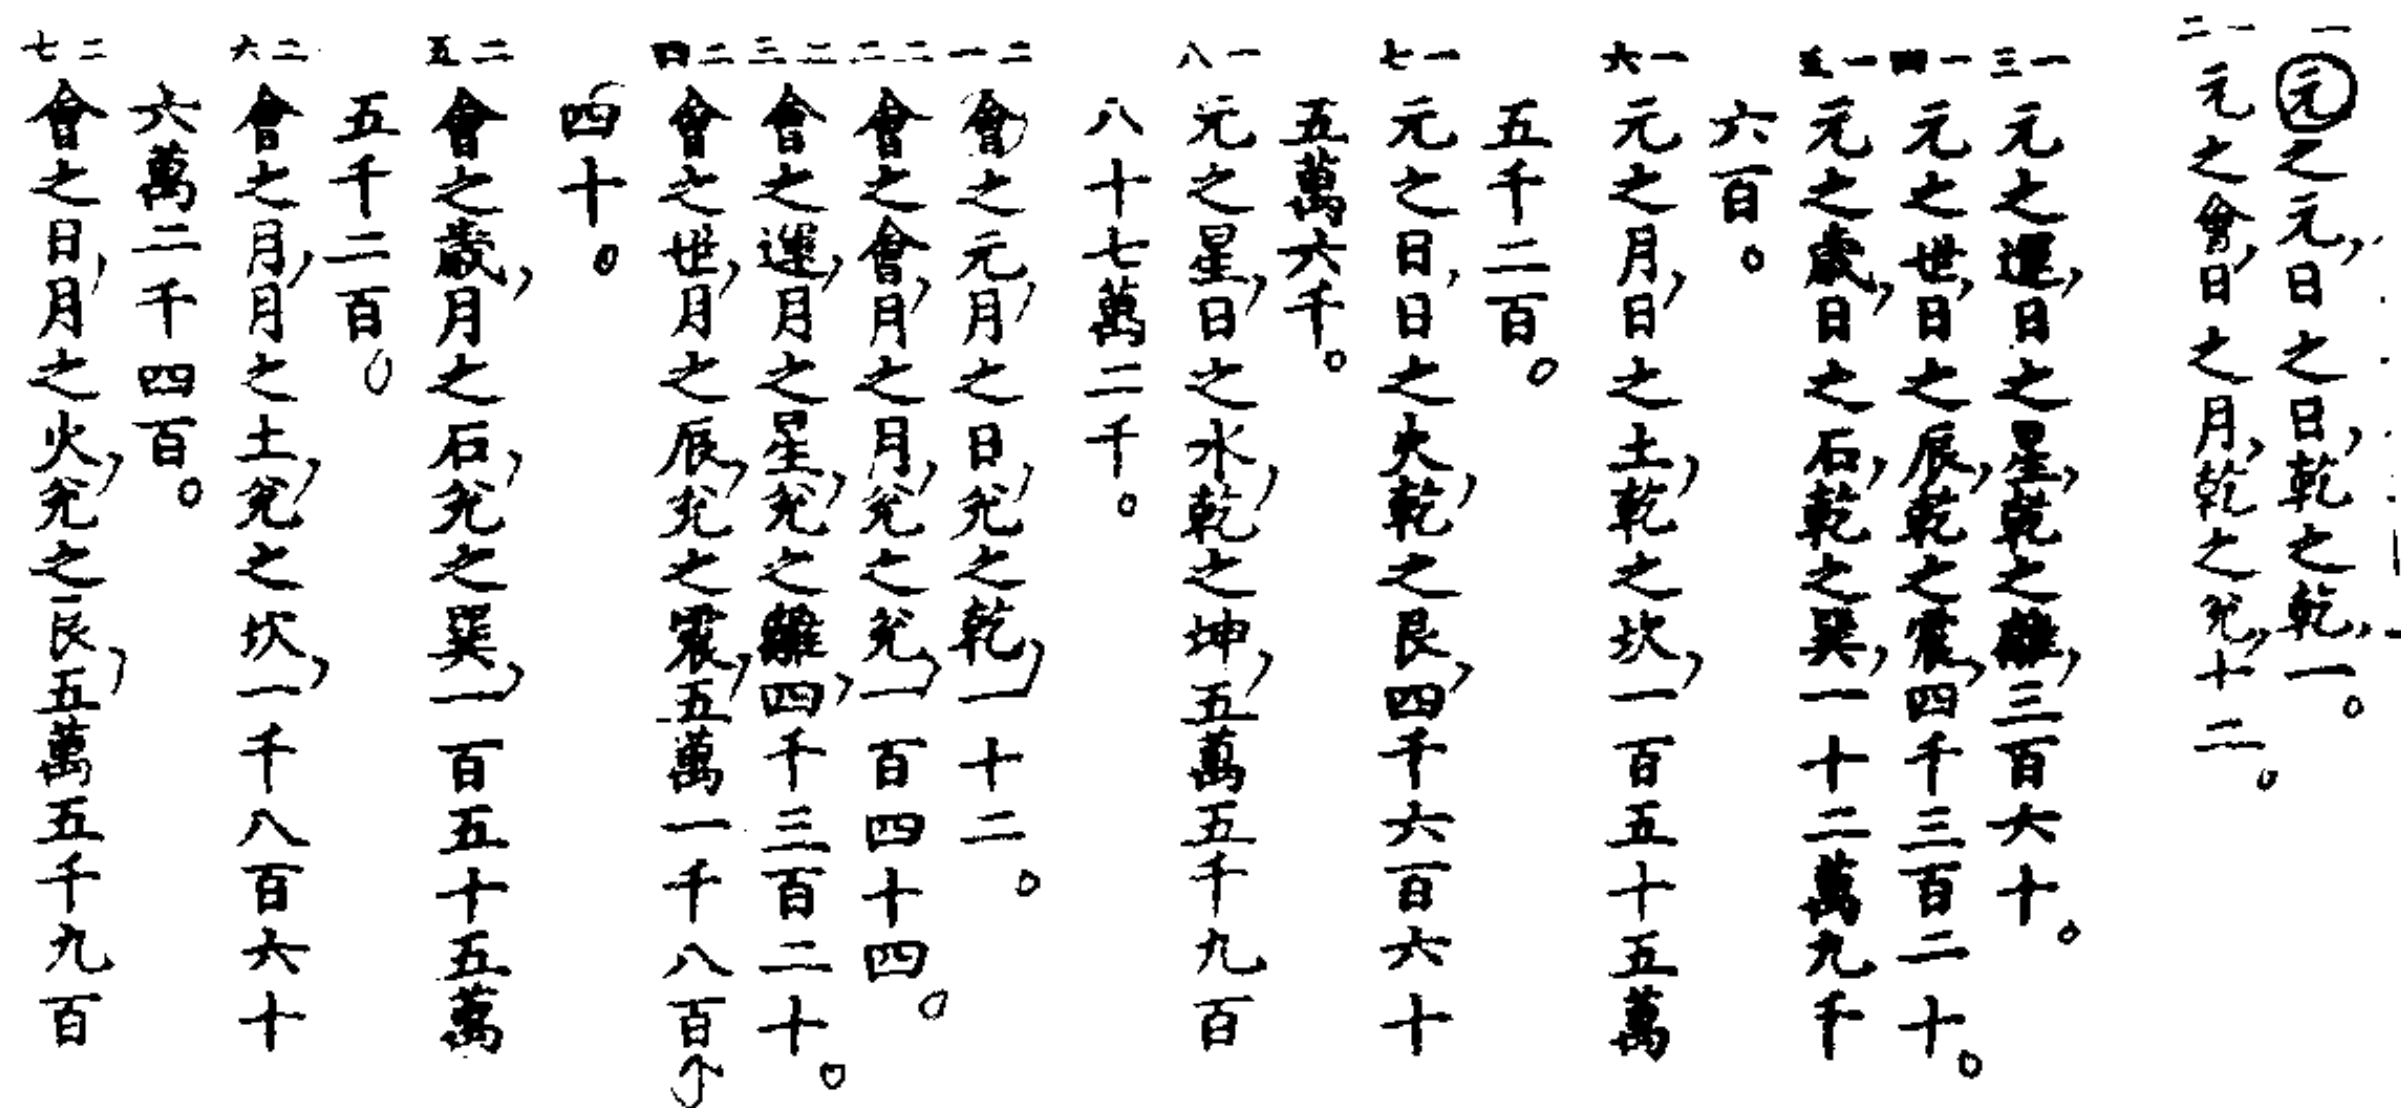 一 元之元，日之日，乾之乾，一。
一二 元之會，日之月，乾之兌，十二。
一三 元之運，日之星，乾之離，三百六十。
一四 元之世，日之辰，乾之震，四千三百二十。
一五 元之歲，日之石，乾之巽，一十二萬九千
六百。
一六 元之月，日之土，乾之坎，一百五十五萬
五千二百。
一七 元之日，日之火，乾之艮，四千六百六十
五萬六千。
一八 元之星，日之水，乾之坤，五萬五千九百
八十七萬二千。
二一 會之元，月之日，兌之乾，一十二。
二二 會之會，月之月，兌之兌，一百四十四。
二三 會之運，月之星，兌之離，四千三百二十。
二四 會之世，月之辰，兌之震，五萬一千八百
四十。
二五 會之歲，月之石，兌之巽，一百五十五萬
五千二百。
二六 會之月，月之土，兌之坎，一千八百六十
六萬二千四百。
二七 會之日，月之火，兌之艮，五萬五千九百